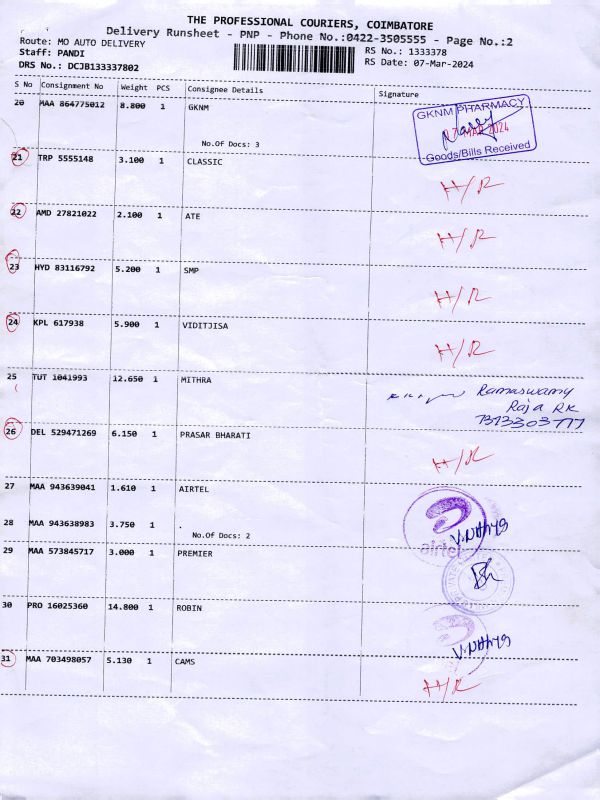 THE PROFESSIONAL COURIERS, COIMBATORE
Delivery Runsheet - PNP - Phone No.:0422-3505555 - Page No.:2
Route: MO AUTO DELIVERY RS No.: 1333378
Staff: PANDI RS Date: 07-Mar-2024
DRS No.: DCJB133337802
S No Consignment No Weight PCS Consignee Details Signature
20 MAA 864775012 8.800 1 GKNM
GKNM PHARMACY
07 MAR 2024
Goods/Bills Received
No.Of Docs: 3
21 TRP 5555148 3.100 1 CLASSIC
H/R
22 AMD 27821022 2.100 1 ATE
H/R
23 HYD 83116792 5.200 1 SMP
H/R
24 KPL 617938 5.900 1 VIDITJISA
H/R
25 TUT 1041993 12.650 1 MITHRA
Ramaswamy
Raja RK
26 DEL 529471269 6.150 1 PRASAR BHARATI
H/R
27 MAA 943639041 1.610 1 AIRTEL
28 MAA 943638983 3.750 1 .
No.Of Docs: 2
airtel
29 MAA 573845717 3.000 1 PREMIER
30 PRO 16025360 14.800 1 ROBIN
31 MAA 703498057 5.130 1 CAMS
H/R